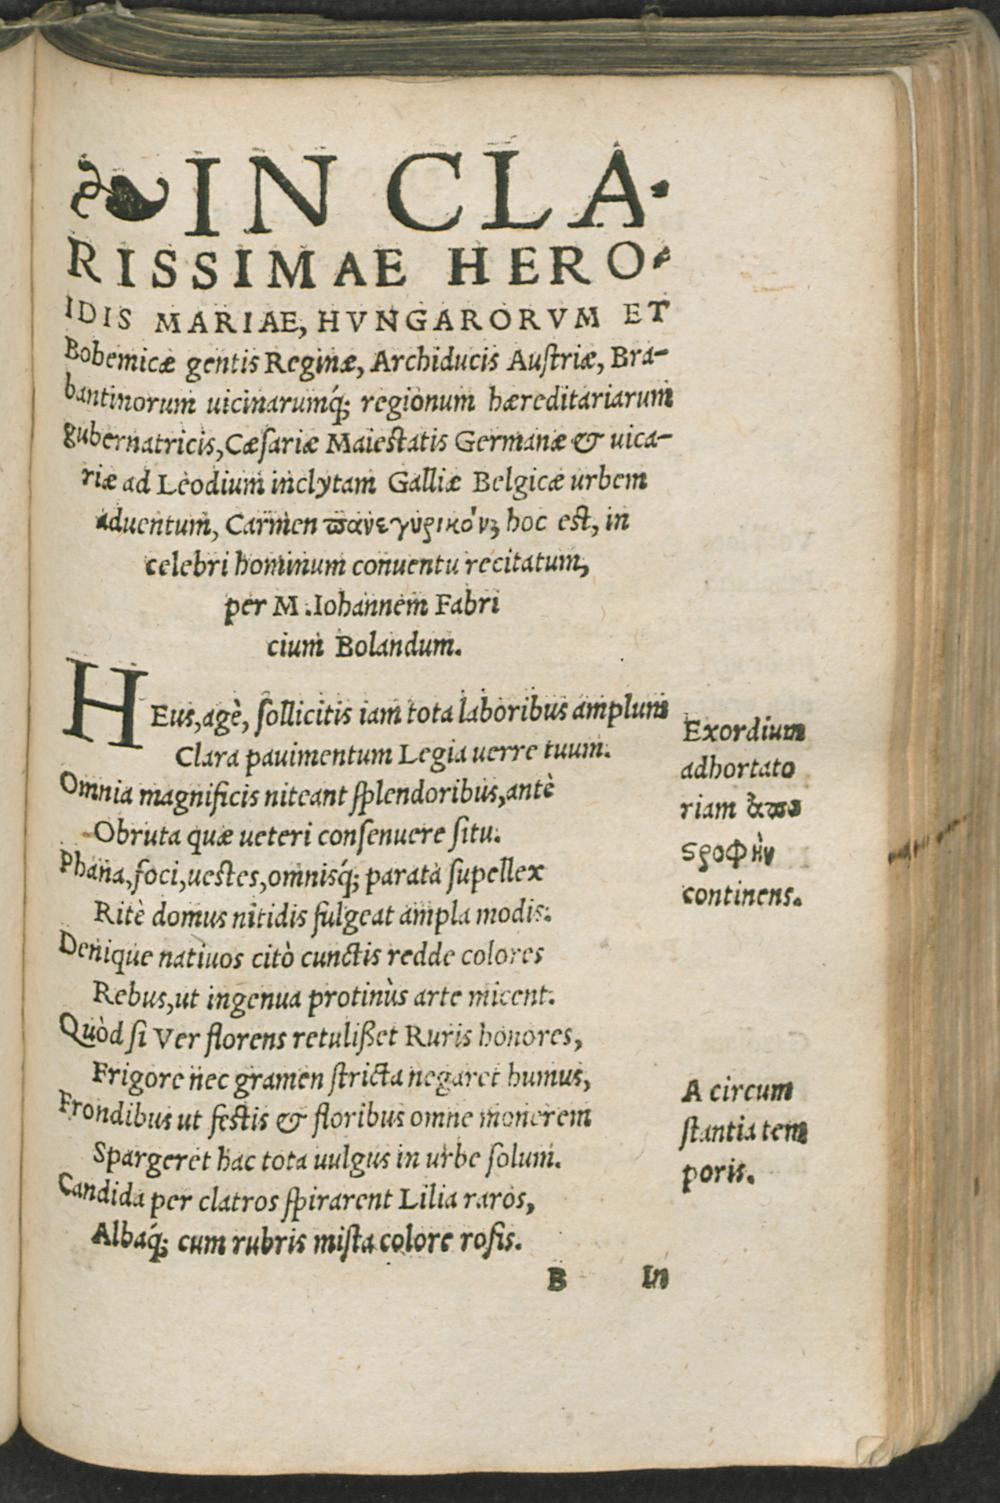 ❧ IN CLA-
RISSIMAE HERO-
IDIS MARIAE, HVNGARORVM ET
Bohemicæ gentis Reginæ, Archiducis Austriæ, Bra-
bantinorum uicinarumq́; regionum hæreditariarum
gubernatricis, Cæsariæ Maiestatis Germanæ & uica-
riæ ad Leodium inclytam Galliæ Belgicæ urbem
aduentum, Carmen πανεγυρικόν, hoc est, in
celebri hominum conuentu recitatum,
per M. Iohannem Fabri
cium Bolandum.
HEus, agè, sollicitis iam tota laboribus amplum
Clara pauimentum Legia uerre tuum.
Omnia magnificis niteant splendoribus, antè
Obruta quæ ueteri consenuere situ.
Phana, foci, uestes, omnisq́; parata supellex
Ritè domus nitidis fulgeat ampla modis.
Denique natiuos citò cunctis redde colores
Rebus, ut ingenua protinùs arte micent.
Quòd si Ver florens retulißet Ruris honores,
Frigore nec gramen stricta negaret humus,
Frondibus ut festis & floribus omne monerem
Spargeret hac tota uulgus in urbe solum.
Candida per clatros spirarent Lilia raros,
Albaq́; cum rubris mista colore rosis.
B In
Exordium
adhortato
riam ἀπο
ςροφὴν
continens.
A circum
stantia tem
poris.